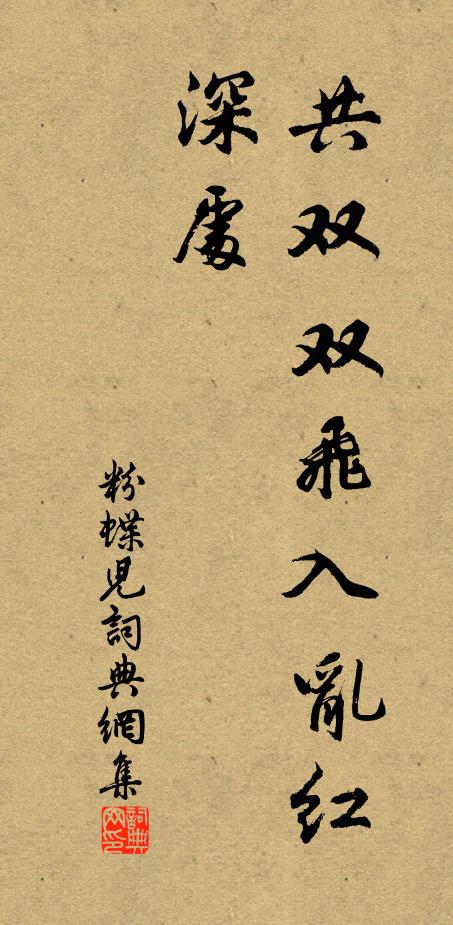 共双双飛入亂红
深處
粉蝶児詞典網集
詞典
网印